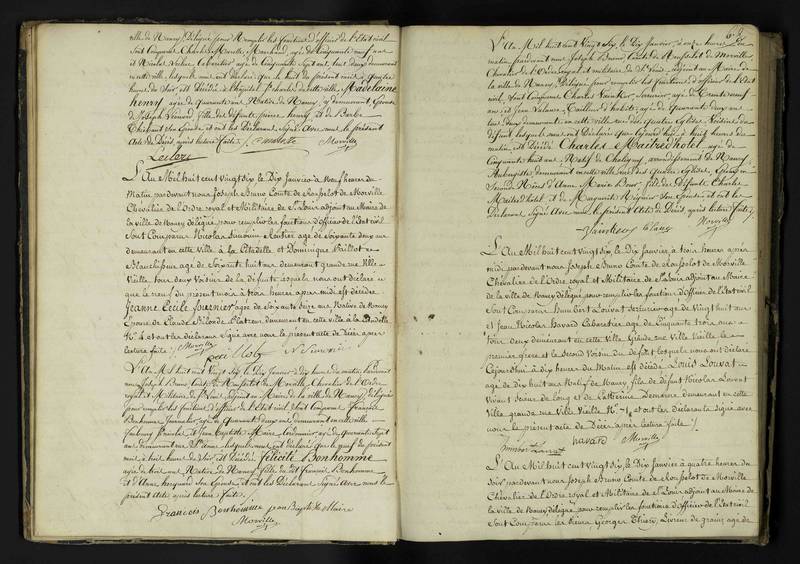 ville de Nancy, Délégué pour Remplir les fonctions d'officier de l'Etat civil
Sont Comparus Charles Marchand, agé de Cinquante neuf ans
et Nicolas agé de Cinquante Sept ans, tous deux demeurant
en cette ville lesquels nous ont déclaré que le huit du présent mois à quatre
heures du Soir est Décédée à l'hôpital St Charles de cette ville, Madelaine
henry agée de quarante ans Native de Nancy, y demeurant Epouse
de Joseph fille des défunts pierre henry et de Barbe
Son Epouse, et ont les Déclarants Signé Avec nous le présent
Acte de Décès après lecture faite. Morville
Leclerc
L'An Mil huit cent Vingt Six, le Dix Janvier à Neuf heures du
Matin pardevant nous Joseph Bruno Comte de Rousselot de Morville
Chevalier de l'Ordre royal et Militaire de St Louis adjoint au Maire de
la ville de Nancy délégué pour remplir les fonctions d'officier de l'Etat civil
Sont Comparus Nicolas Simonin Rentier age de Soixante deux ans
demeurant en cette Ville à la Citadelle et Dominique
Blanchisseur age de Soixante huit ans demeurant grande rue Ville-
Vieille, tous deux Voisins de la défunte lesquels nous ont déclaré
que le neuf du present mois à trois heures apres midi est décédée
Jeanne Cecile fournier agee de Soixante Seize ans Native de Nancy
Epouse de Claude demeurant en cette ville à la Citadelle
No 4 et ont les déclarans Signé avec nous le présent acte de Décès apres
lecture faite. Morville
N Simonin
L'An Mil huit cent Vingt Six, le Dix Janvier à Dix heures du matin, pardevant
nous Joseph Bruno Comte de Rousselot de Morville, Chevalier de l'Ordre
royal et Militaire de St Louis, Adjoint au Maire de la ville de Nancy, Délégué
pour remplir les fonctions d'officier de l'Etat civil Sont Comparus François
Bonhomme Journalier, agé de quarante deux ans demeurant en cette ville
et Jean Baptiste Maire, Cordonnier agé de quarante
ans demeurant lesquels nous ont déclaré que le neuf du présent
mois à huit heures du Soir est Décédée félicité Bonhomme
agée de huit ans Native de Nancy, fille du dit François Bonhomme
et d'Anne Son Epouse, et ont les Déclarants Signé Avec nous le
présent Acte après lecture faite.
François Bonhomme Jean Baptiste Maire
Morville
L'An Mil huit cent Vingt Six, le Dix Janvier, à onze heures du
matin, pardevant nous Joseph Bruno Comte de Rousselot de Morville
Chevalier de l'Ordre royal et militaire de St Louis, adjoint au Maire de
la ville de Nancy, Délégué pour remplir les fonctions d'officier de l'Etat
civil, Sont Comparus Charles agé de Trente neuf
ans, et Jean agé de quarante deux ans
tous deux demeurant en cette ville rue des quatre Eglises, Voisins du
défunt lesquels nous ont Déclaré que à huit heures du
matin, est Décédé Charles Maitredhotel, agé de
Cinquante huit ans Natif de Chaligny, arrondissement de Nancy
Aubergiste demeurant en cette ville rue des quatre Eglises, Epoux en
Secondes Noces d'Anne Marie fils des Défunts Charles
Maitredhotel, et de Marguerite Son Epouse et ont les
Déclarants Signé Avec nous le présent Acte de Décès, après lecture faite.
Morville
L'An Mil huit cent Vingt Six, le Dix Janvier, à trois heures apres
midi pardevant nous Joseph Bruno Comte de Rousselot de Morville
Chevalier de l'Ordre royal et Militaire de St Louis adjoint au Maire
de la ville de Nancy délégué pour remplir les fonctions d'officier de l'Etat civil
Sont Comparus Humbert Louvat Serrurier age de Vingt huit ans
et Jean Nicolas havard Cabaretier age de Cinquante trois ans
tous deux demeurant en cette Ville Grande rue Ville Vieille le
premier frere et le Second Voisin du défunt lesquels nous ont déclaré
Cejourdhui à dix heures du Matin est décédé Louis Louvat
agé de dix huit ans Natif de Nancy fils de défunt Nicolas Louvat
Vivant et de Catherine demeurant en cette
Ville grande rue Ville Vieille No et ont les déclarants Signé avec
nous le présent acte de Décès apres lecture faite
havard Morville
humbert Louvat
L'An Mil huit cent Vingt Six, le Dix Janvier à quatre heures du
Soir pardevant nous Joseph Bruno Comte de Rousselot de Morville
Chevalier de l'Ordre royal et Militaire de St Louis adjoint au Maire de
la ville de Nancy délégué pour remplir les fonctions d'officier de l'Etat civil
Sont Comparus les Sieurs Georges Thiery, de grains age de